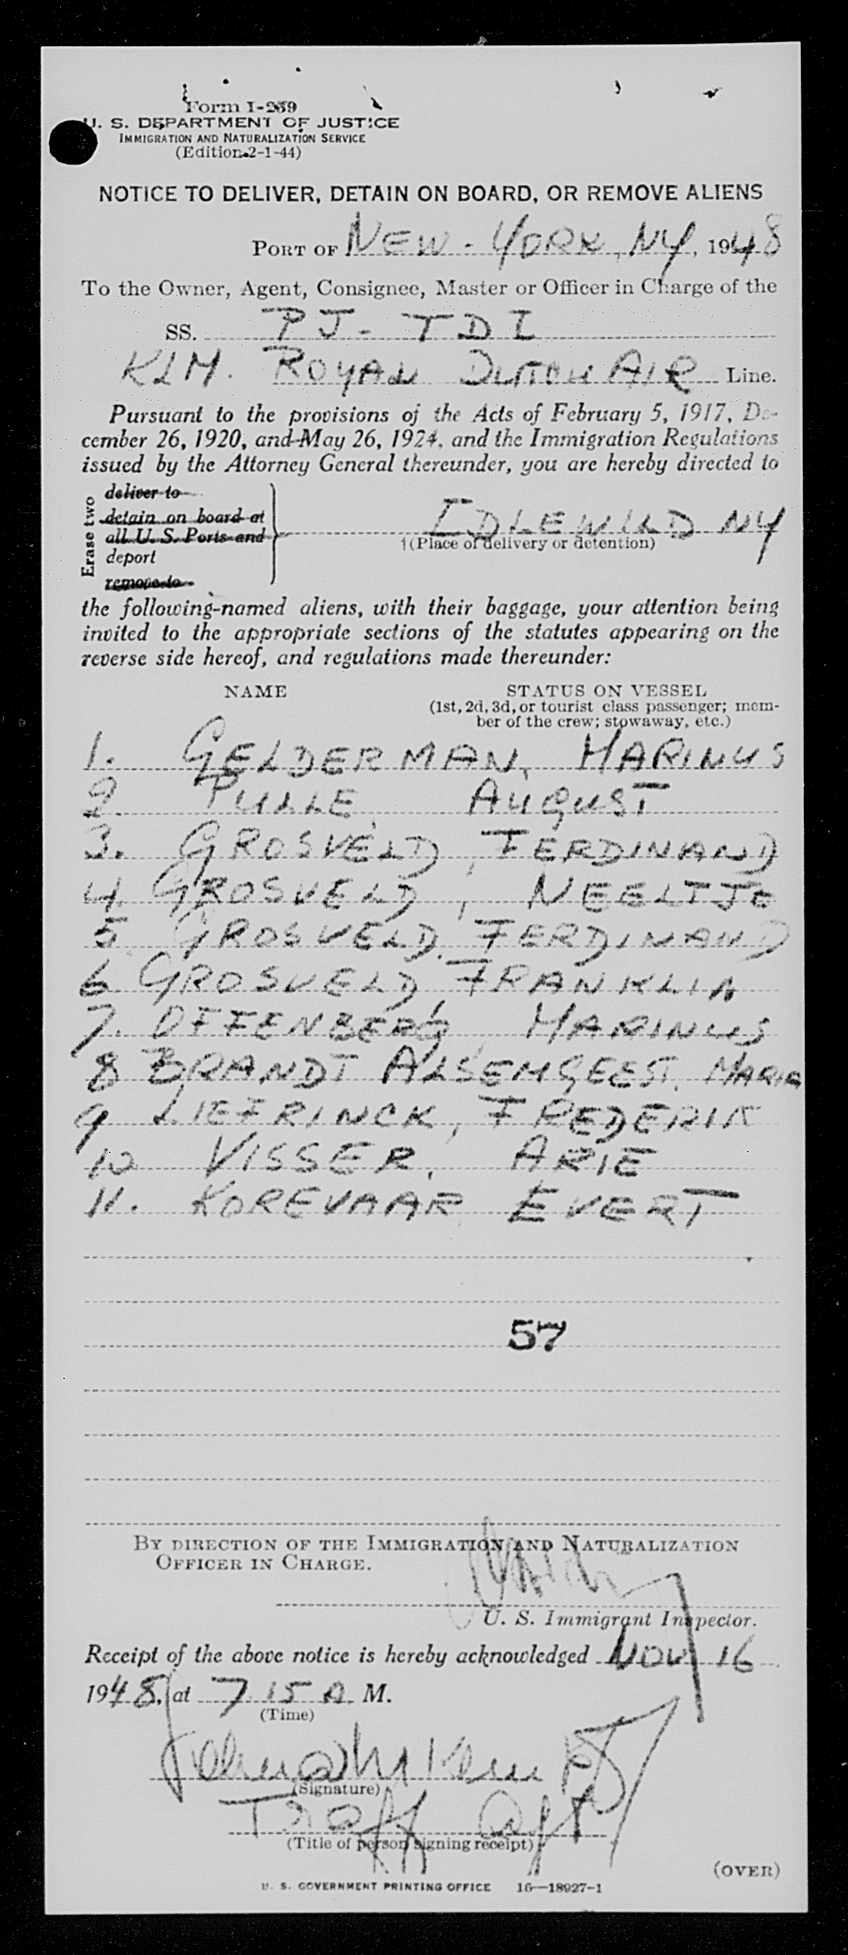 Form I-259
U. S. DEPARTMENT OF JUSTICE
IMMIGRATION AND NATURALIZATION SERVICE
(Edition 2-1-44)
NOTICE TO DELIVER, DETAIN ON BOARD, OR REMOVE ALIENS
PORT OF NEW-YORK, NY, 1948
To the Owner, Agent, Consignee, Master or Officer in Charge of the
SS. PJ-TDI
KLM. ROYAL DUTCH AIR Line.
Pursuant to the provisions of the Acts of February 5, 1917, De-
cember 26, 1920, and May 26, 1924, and the Immigration Regulations
issued by the Attorney General thereunder, you are hereby directed to
Erase two
deliver to
detain on board at
all U. S. Ports and
deport
remove to
IDLEWILD NY
†(Place of delivery or detention)
the following-named aliens, with their baggage, your attention being
invited to the appropriate sections of the statutes appearing on the
reverse side hereof, and regulations made thereunder:
NAME STATUS ON VESSEL
(1st, 2d, 3d, or tourist class passenger; mem-
ber of the crew; stowaway, etc.)
1. GELDERMAN, MARINUS
2. PULLE, AUGUST
3. GROSVELD, FERDINAND
4. GROSVELD, NEELTJE
5 GROSVELD, FERDINAND
6 GROSVELD, FRANKLIN
7. OFFENBERG, MARINUS
8 BRANDT ALSEMGEEST, MARIA
9 LIEFRINCK, FREDERIK
10 VISSER, ARIE
11. KOREVAAR EVERT
57
BY DIRECTION OF THE IMMIGRATION AND NATURALIZATION
OFFICER IN CHARGE.
U. S. Immigrant Inspector.
Receipt of the above notice is hereby acknowledged NOV 16
1948, at 7 15 A. M.
(Time)
(Signature)
Traff Agt
(Title of person signing receipt)
(OVER)
U. S. GOVERNMENT PRINTING OFFICE 16—18927-1